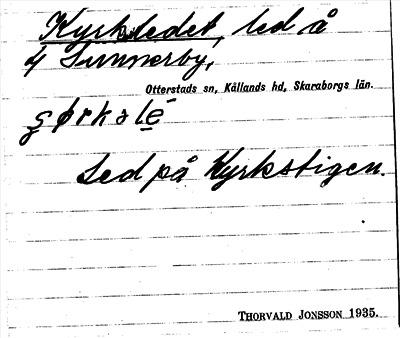 Kyrkledet, led å
4 Sunnerby,
Otterstads sn, Kållands hd, Skaraborgs län.
Led på Kyrkstigen.
THORVALD JONSSON 1935.